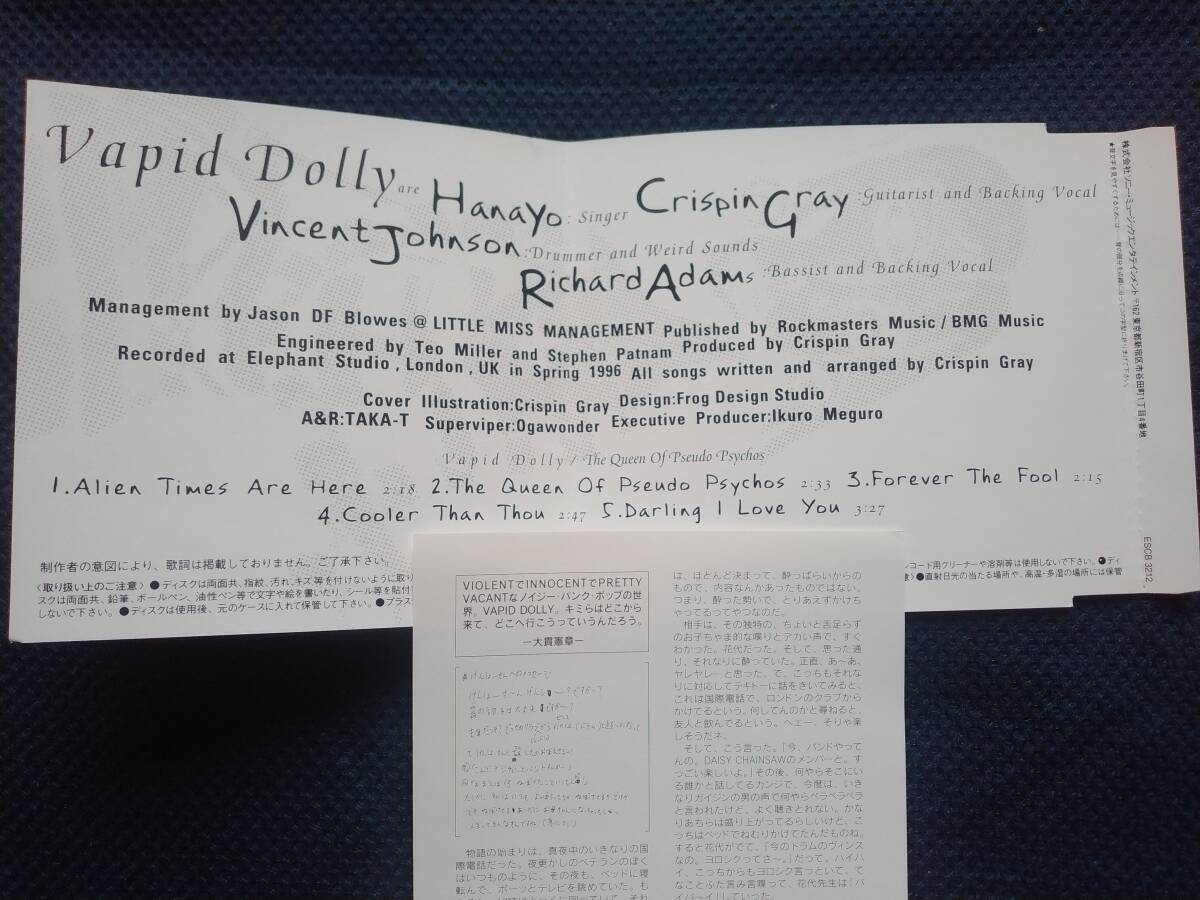 Vapid Dolly are Hanayo: Singer Crispin Gray: Guitarist and Backing Vocal
Vincent Johnson: Drummer and Weird Sounds
Richard Adams: Bassist and Backing Vocal
Management by Jason DF Blowes @ LITTLE MISS MANAGEMENT Published by Rockmasters Music / BMG Music
Engineered by Teo Miller and Stephen Patnam Produced by Crispin Gray
Recorded at Elephant Studio, London, UK in Spring 1996 All songs written and arranged by Crispin Gray
Cover Illustration:Crispin Gray Design:Frog Design Studio
A&R:TAKA-T Superviper:Ogawonder Executive Producer:Ikuro Meguro
Vapid Dolly / The Queen Of Pseudo Psychos
1.Alien Times Are Here 2:18 2.The Queen Of Pseudo Psychos 2:33 3.Forever The Fool 2:15
4.Cooler Than Thou 2:47 5.Darling I Love You 3:27
制作者の意図により、歌詞は掲載しておりません。ご了承下さい。
〈取り扱い上のご注意〉●ディスクは両面共、指紋、汚れ、キズ等を付けないように取り
スクは両面共、鉛筆、ボールペン、油性ペン等で文字や絵を書いたり、シール等を貼付
しないで下さい。●ディスクは使用後、元のケースに入れて保管して下さい。●プラス
コード用クリーナーや溶剤等は使用しないで下さい。●ディ
●直射日光の当たる場所や、高温・多湿の場所には保管
株式会社ソニー・ミュージックエンタテインメント 〒162 東京都新宿区市谷田町1丁目4番地
ESCB 3212
VIOLENTでINNOCENTでPRETTY
VACANTなノイジー・パンク・ポップの世
界。VAPID DOLLY。キミらはどこから
来て、どこへ行こうっていうんだろう。
―大貫憲章―
物語の始まりは、真夜中のいきなりの国
際電話だった。夜更かしのベテランのぼく
はいつものように、その夜も、ベッドに寝
転んで、ボーッとテレビを眺めていた。も
は、ほとんど決まって、酔っぱらいからの
もので、内容なんかあったものではない。
つまり、酔った勢いで、とりあえずかけち
ゃってるってやつなのだ。
相手は、その独特の、ちょいと舌足らず
のお子ちゃま的な喋りとデカい声で、すぐ
わかった。花代だった。そして、思った通
り、それなりに酔っていた。正直、あ～あ、
ヤレヤレーと思った。で、こっちもそれな
りに対応してテキトーに話をきいてみると、
これは国際電話で、ロンドンのクラブから
かけてるという。何してんのかと尋ねると、
友人と飲んでるという。ヘエー、そりゃ楽
しそうだネ。
そして、こう言った。「今、バンドやって
んの。DAISY CHAINSAWのメンバーと。す
っごい楽しいよ。」その後、何やらそこにい
る誰かと話してるカンジで、今度は、いき
なりガイジンの男の声で何やらベラベラベラ
と言われたけど、よく聴きとれない。かな
りあちらは盛り上がってるらしいけど、こ
っちはベッドでねむりかけてたんだものね。
すると花代がでて、「今のドラムのヴィンス
なの。ヨロシクってさ～。」だって。ハイハ
イ、こっちからもヨロシク言っといて、て
なことふた言み言喋って、花代先生は「バ
イバ～イ！」っていった。